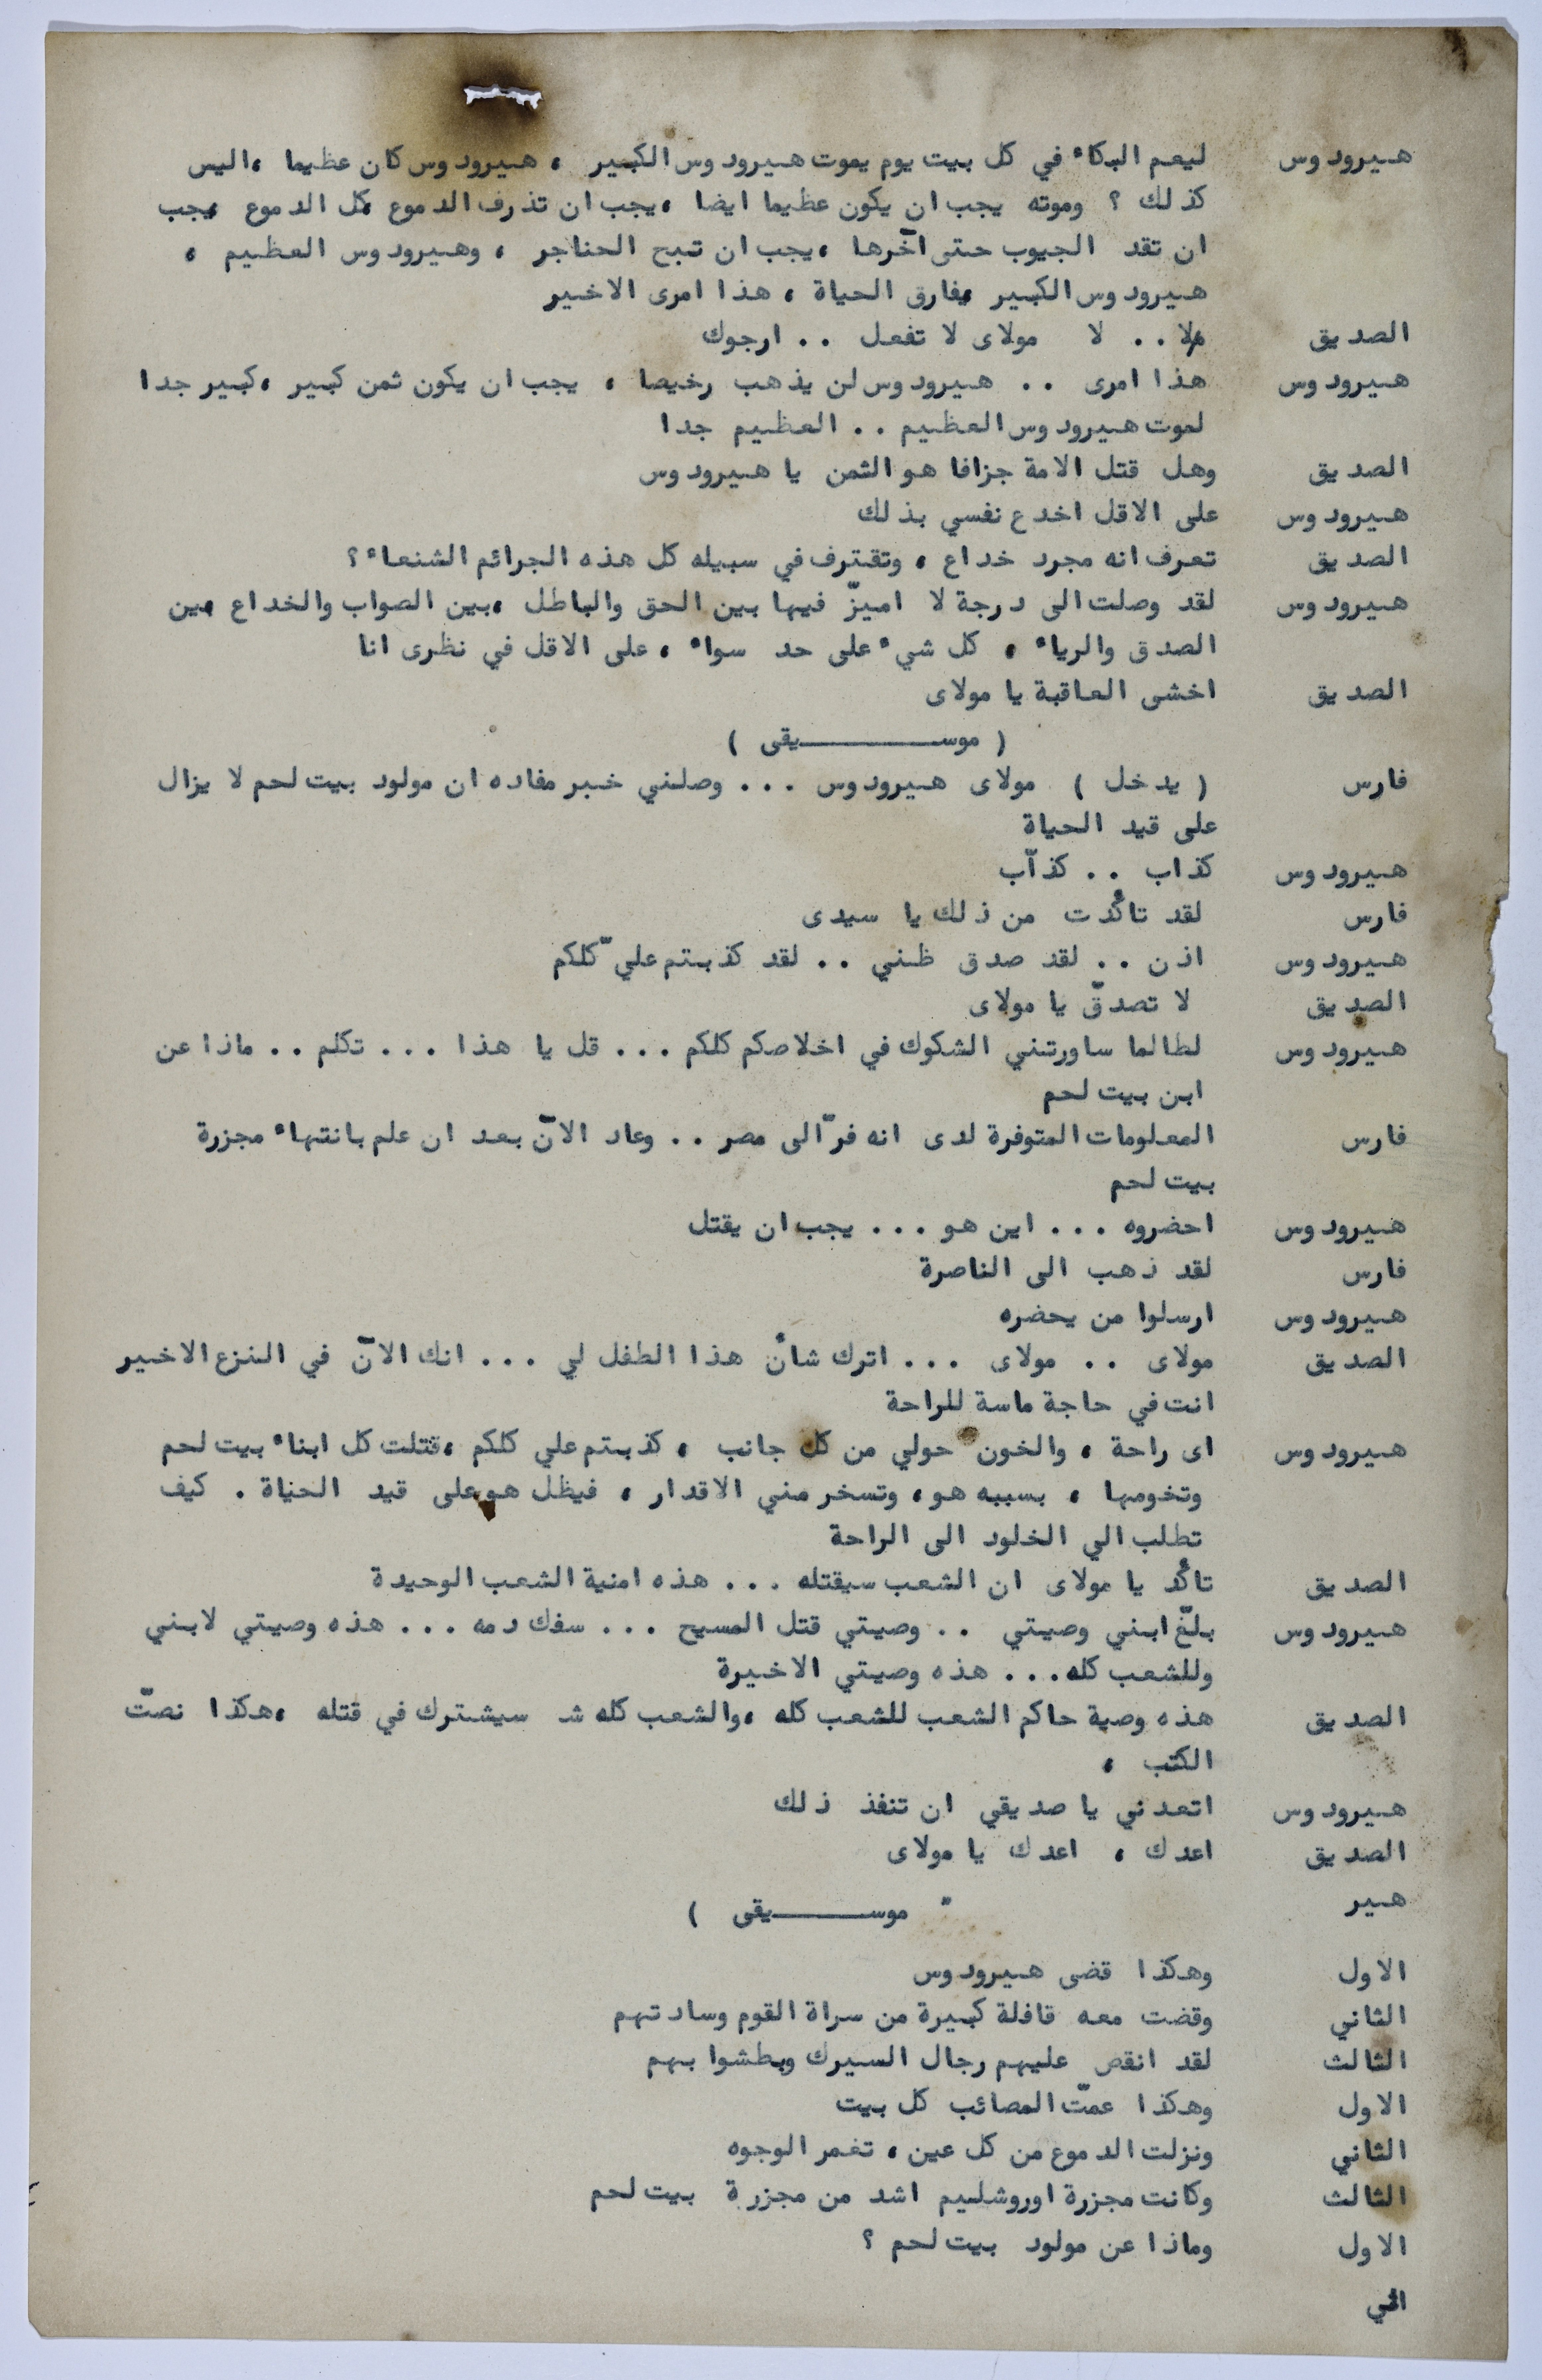 هيرودوس ليعم البكاء في كل بيت يوم يموت هيرودوس الكبير ، هيرودوس كان عظيما ،اليس
كذلك ؟ وموته يجب ان يكون عظيما ايضا ،يجب ان تذرف الدموع ،كل الدموع ،يجب
ان تقد الجيوب حتى آخرها ،يجب ان تبح الحناجر ، وهيرودوس العظيم ،
هيرودوس الكبير ،يفارق الحياة ، هذا امرى الاخير
الصديق لا .. لا مولاى لا تفعل .. ارجوك
هيرودوس هذا امرى .. هيرودوس لن يذهب رخيصا ، يجب ان يكون ثمن كبير ،كبير جدا
لموت هيرودوس العظيم .. العظيم جدا
الصديق وهل قتل الامة جزافا هو الثمن يا هيرودوس
هيرودوس على الاقل اخدع نفسي بذلك
الصديق تعرف انه مجرد خداع ، وتقترف في سبيله كل هذه الجرائم الشنعاء ؟
هيرودوس لقد وصلت الى درجة لا اميزّ فيها بين الحق والباطل ،بين الصواب والخداع ،بين
الصدق والرياء ، كل شيء على حد سواء ، على الاقل في نظرى انا
الصديق اخشى العاقبة يا مولاى
( موســـــــــيقى )
فارس ( يدخل ) مولاى هيرودوس ... وصلني خبر مفاده ان مولود بيت لحم لا يزال
على قيد الحياة
هيرودوس كذاب .. كذآب
فارس لقد تأكّدت من ذلك يا سيدى
هيرودوس اذن .. لقد صدق ظني .. لقد كذبتم عليّ كلكم
الصديق لا تصدقّ يا مولاى
هيرودوس لطالما ساورتني الشكوك في اخلاصكم كلكم ... قل يا هذا ... تكلم .. ماذا عن
ابن بيت لحم
فارس المعلومات المتوفرة لدى انه فرّ الى مصر .. وعاد الآن بعد ان علم بانتهاء مجزرة
بيت لحم
هيرودوس احضروه ... اين هو ... يجب ان يقتل
فارس لقد ذهب الى الناصرة
هيرودوس ارسلوا من يحضره
الصديق مولاى .. مولاى ... اترك شأن هذا الطفل لي ... انك الآن في النزع الاخير
انت في حاجة ماسة للراحة
هيرودوس اى راحة ، والخون حولي من كل جانب ، كذبتم علي كلكم ،قتلت كل ابناء بيت لحم
وتخومها ، بسببه هو، وتسخر مني الاقدار ، فيظل هو على قيد الحياة . كيف
تطلب الي الخلود الى الراحة
الصديق تأكّد يا مولاى ان الشعب سيقتله ... هذه امنية الشعب الوحيدة
هيرودوس بلّغ ابني وصيتي .. وصيتي قتل المسيح ... سفك دمه ... هذه وصيتي لابني
وللشعب كله... هذه وصيتي الاخيرة
الصديق هذه وصية حاكم الشعب للشعب كله ،والشعب كله شـ سيشترك في قتله ،هكذا نصتّ
الكتب ،
هيرودوس اتعدني يا صديقي ان تنفذ ذلك
الصديق اعدك ، اعدك يا مولاى
هير
" موســـــــيقى )
الاول وهكذا قضى هيرودوس
الثاني وقضت معه قافلة كبيرة من سراة القوم وسادتهم
الثالث لقد انقص عليهم رجال السيرك وبطشوا بهم
الاول وهكذا عمتّ المصائب كل بيت
الثاني ونزلت الدموع من كل عين ، تغمر الوجوه
الثالث وكانت مجزرة اوروشليم اشد من مجزرة بيت لحم
الاول وماذا عن مولود بيت لحم ؟